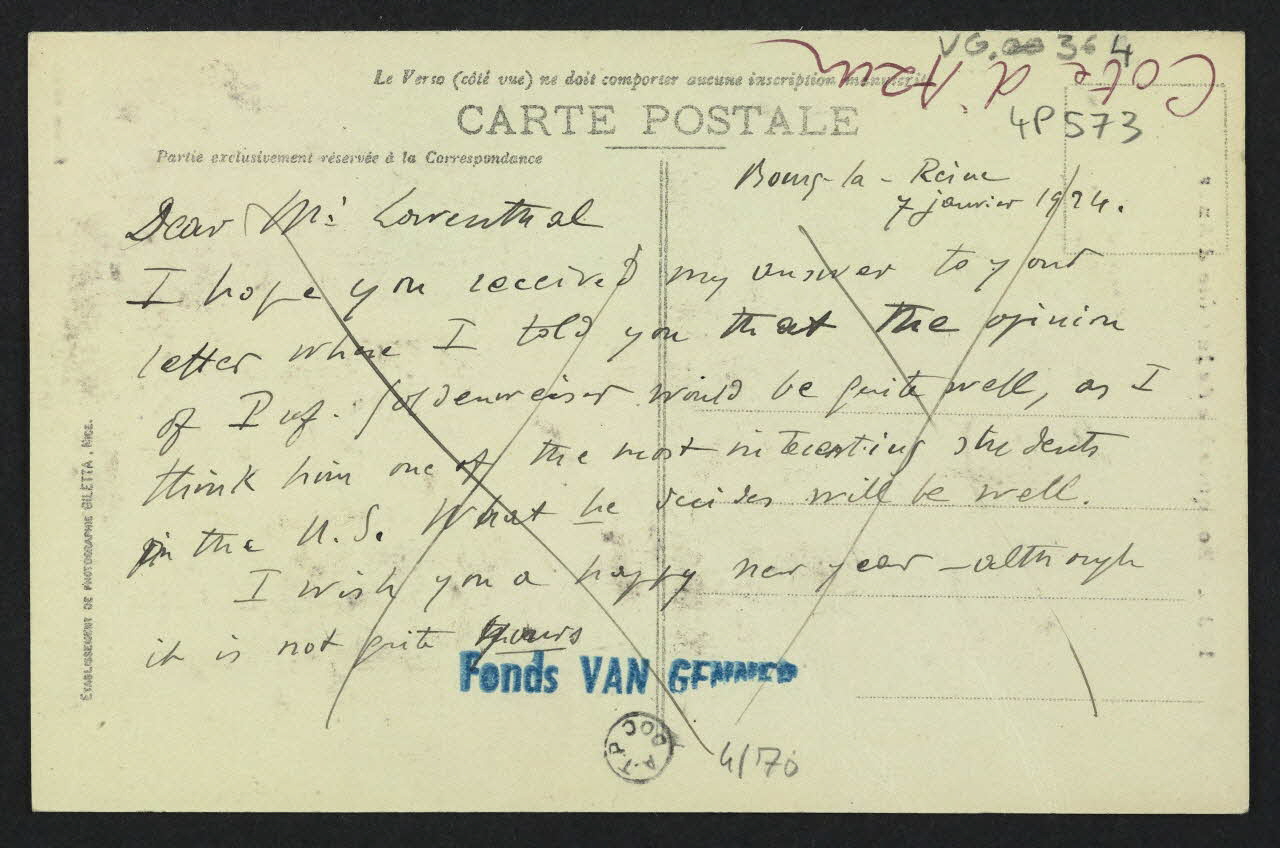 VG.00 364
Côte d'Azur
4P573
Le Verso (côté vue) ne doit comporter aucune inscription manuscrite
CARTE POSTALE
Partie exclusivement réservée à la Correspondance
Bourg-la-Reine
7 janvier 1924.
Dear Mr Lowenthal
I hope you received my answer to your
letter where I told you that the opinion
of Prof. Goldenweiser would be quite well, as I
think him one of the most interesting students
in the U.S. What he decides will be well.
I wish you a happy new year - although
it is not quite yours
Fonds VAN GENNEP
A.T.P. DOC
4/70
ETABLISSEMENT DE PHOTOGRAPHIE GILETTA, NICE.